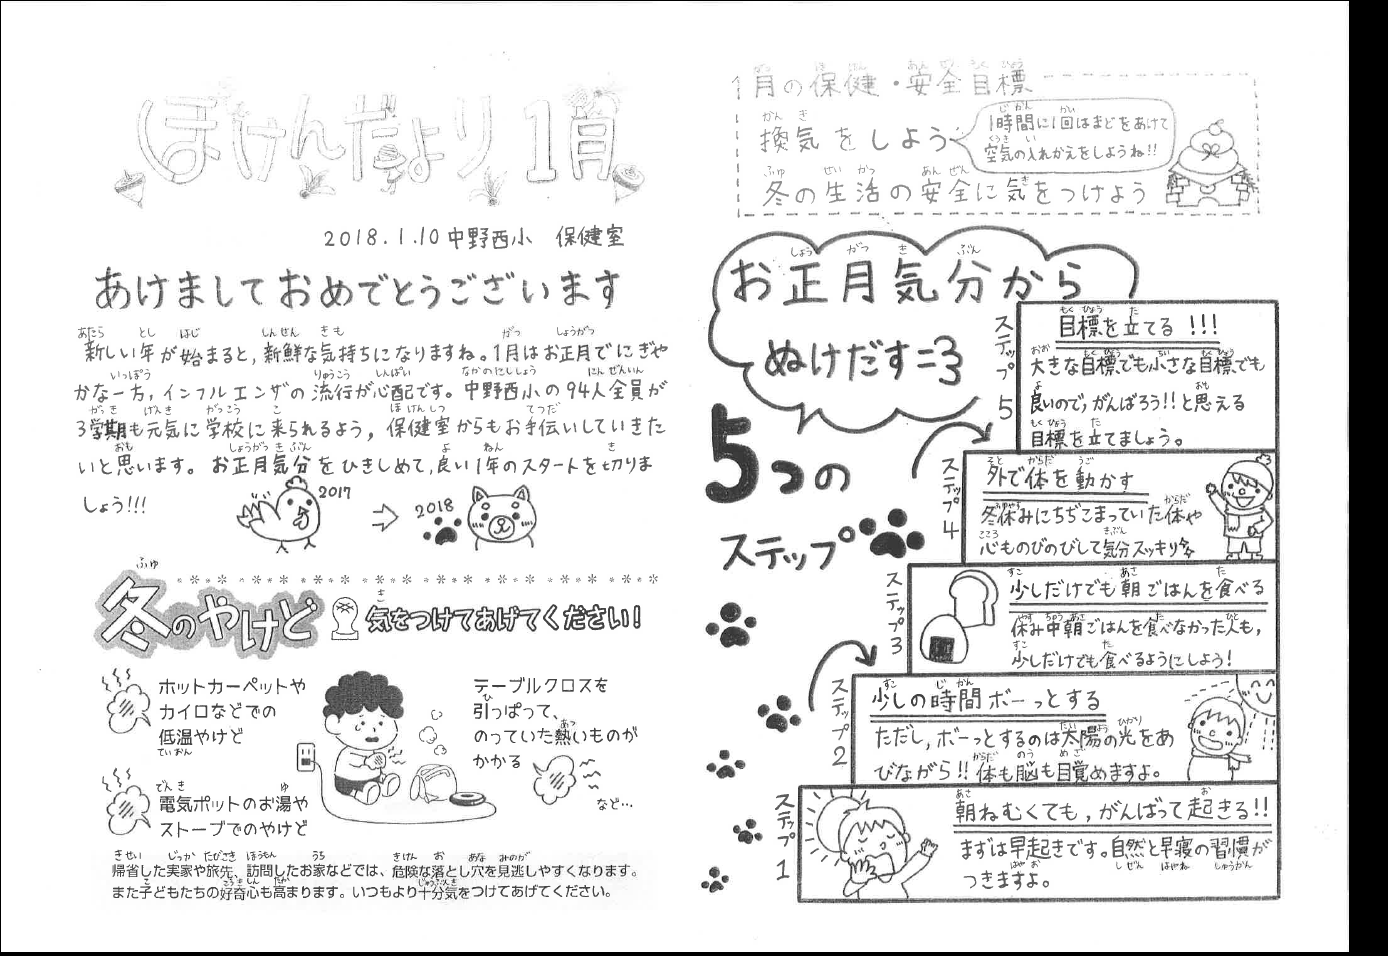 ほけんだより 1月
2018.1.10 中野西小 保健室
あけましておめでとうございます
新しい年が始まると,新鮮な気持ちになりますね。1月はお正月でにぎや
かな一方,インフルエンザの流行が心配です。中野西小の94人全員が
3学期も元気に学校に来られるよう,保健室からもお手伝いしていきた
いと思います。お正月気分をひきしめて,良い1年のスタートを切りま
しょう!!!
2017
2018
冬のやけど
気をつけてあげてください!
ホットカーペットや
カイロなどでの
低温やけど
電気ポットのお湯や
ストーブでのやけど
テーブルクロスを
引っぱって、
のっていた熱いものが
かかる
など…
帰省した実家や旅先、訪問したお家などでは、危険な落とし穴を見逃しやすくなります。
また子どもたちの好奇心も高まります。いつもより十分気をつけてあげてください。
1月の保健・安全目標
換気をしよう
1時間に1回はまどをあけて
空気の入れかえをしようね!!
冬の生活の安全に気をつけよう
お正月気分から
ぬけだす=3
5つの
ステップ
ステップ5
目標を立てる !!!
大きな目標でも小さな目標でも
良いので,がんばろう!!と思える
目標を立てましょう。
ステップ4
外で体を動かす
冬休みにちぢこまっていた体や
心ものびのびして気分スッキリ
ステップ3
少しだけでも朝ごはんを食べる
休み中朝ごはんを食べなかった人も,
少しだけでも食べるようにしよう!
ステップ2
少しの時間ボーっとする
ただし,ボーっとするのは太陽の光をあ
びながら!!体も脳も目覚めますよ。
ステップ1
朝ねむくても,がんばって起きる!!
まずは早起きです。自然と早寝の習慣が
つきますよ。